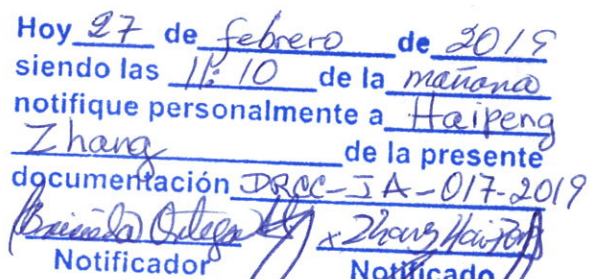 Hoy 27 de febrero de 2019
siendo las 11:10 de la mañana
notifique personalmente a Haipeng
Zhang de la presente
documentación DRCC-IA-017-2019
Zhang Haipeng
Notificador Notificado